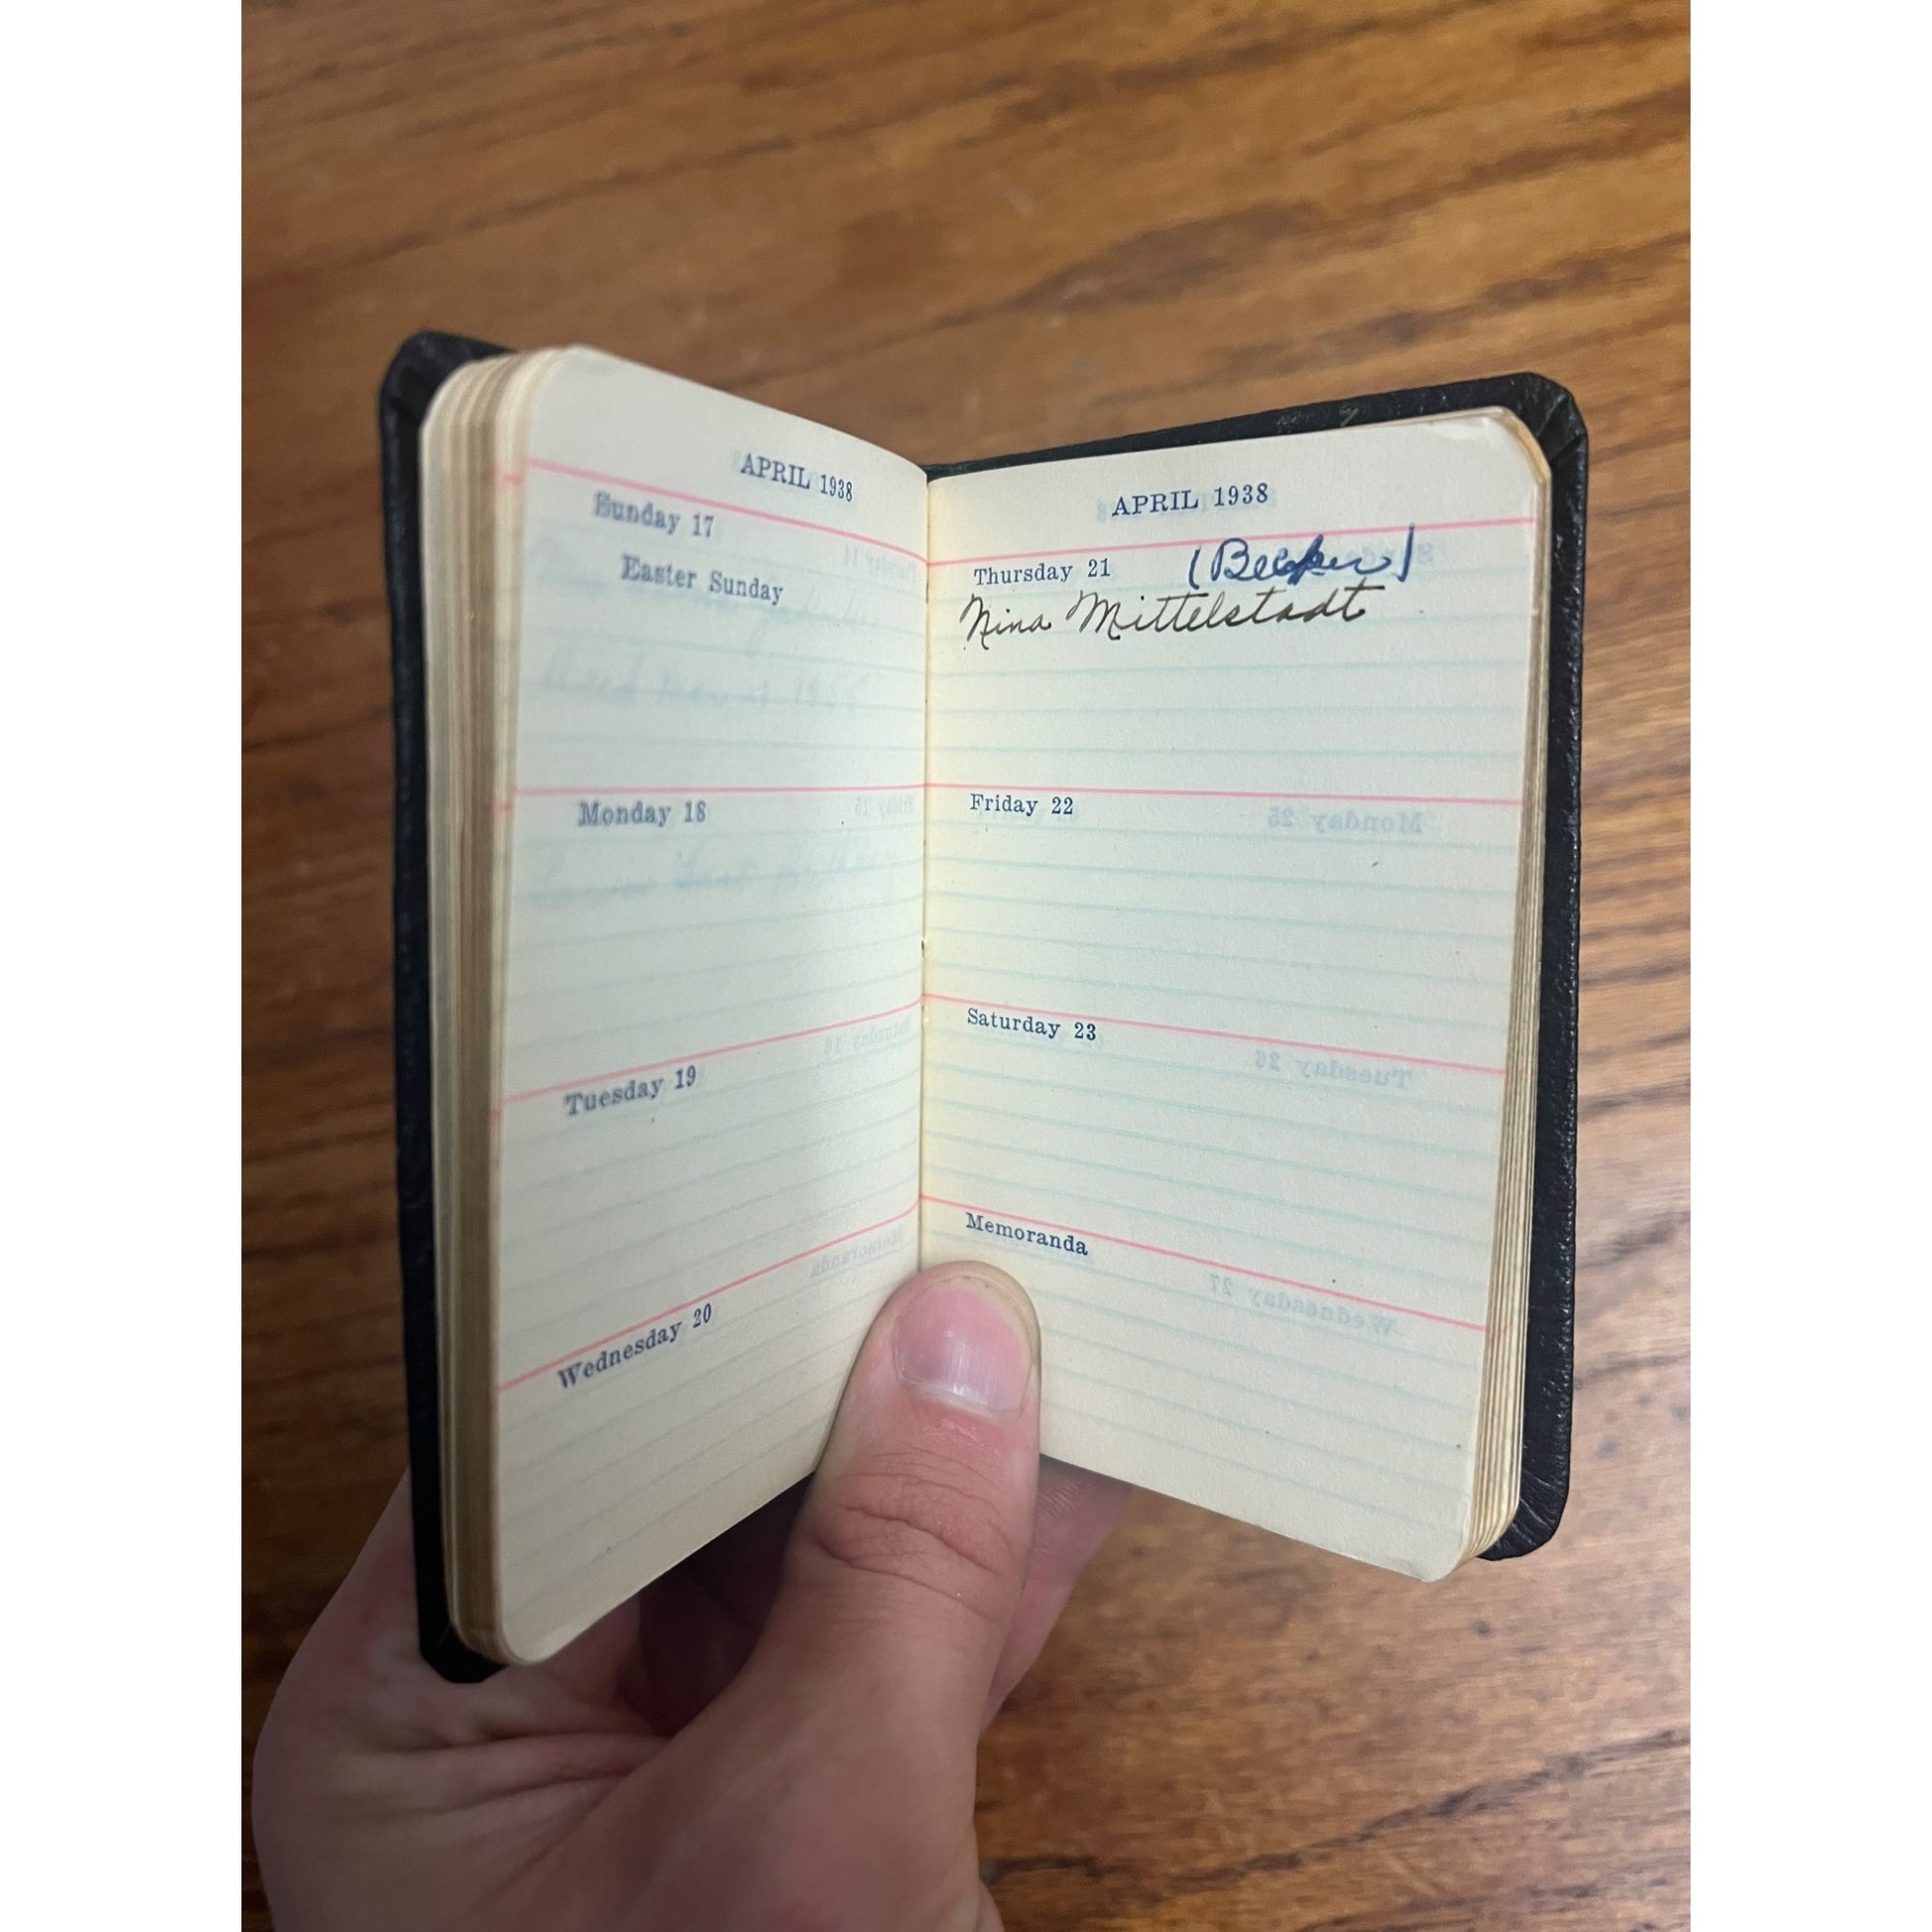 APRIL 1938
Sunday 17
Easter Sunday
Monday 18
Tuesday 19
Wednesday 20
APRIL 1938
Thursday 21 (Becker)
Nina Mittelstadt
Friday 22
Saturday 23
Memoranda